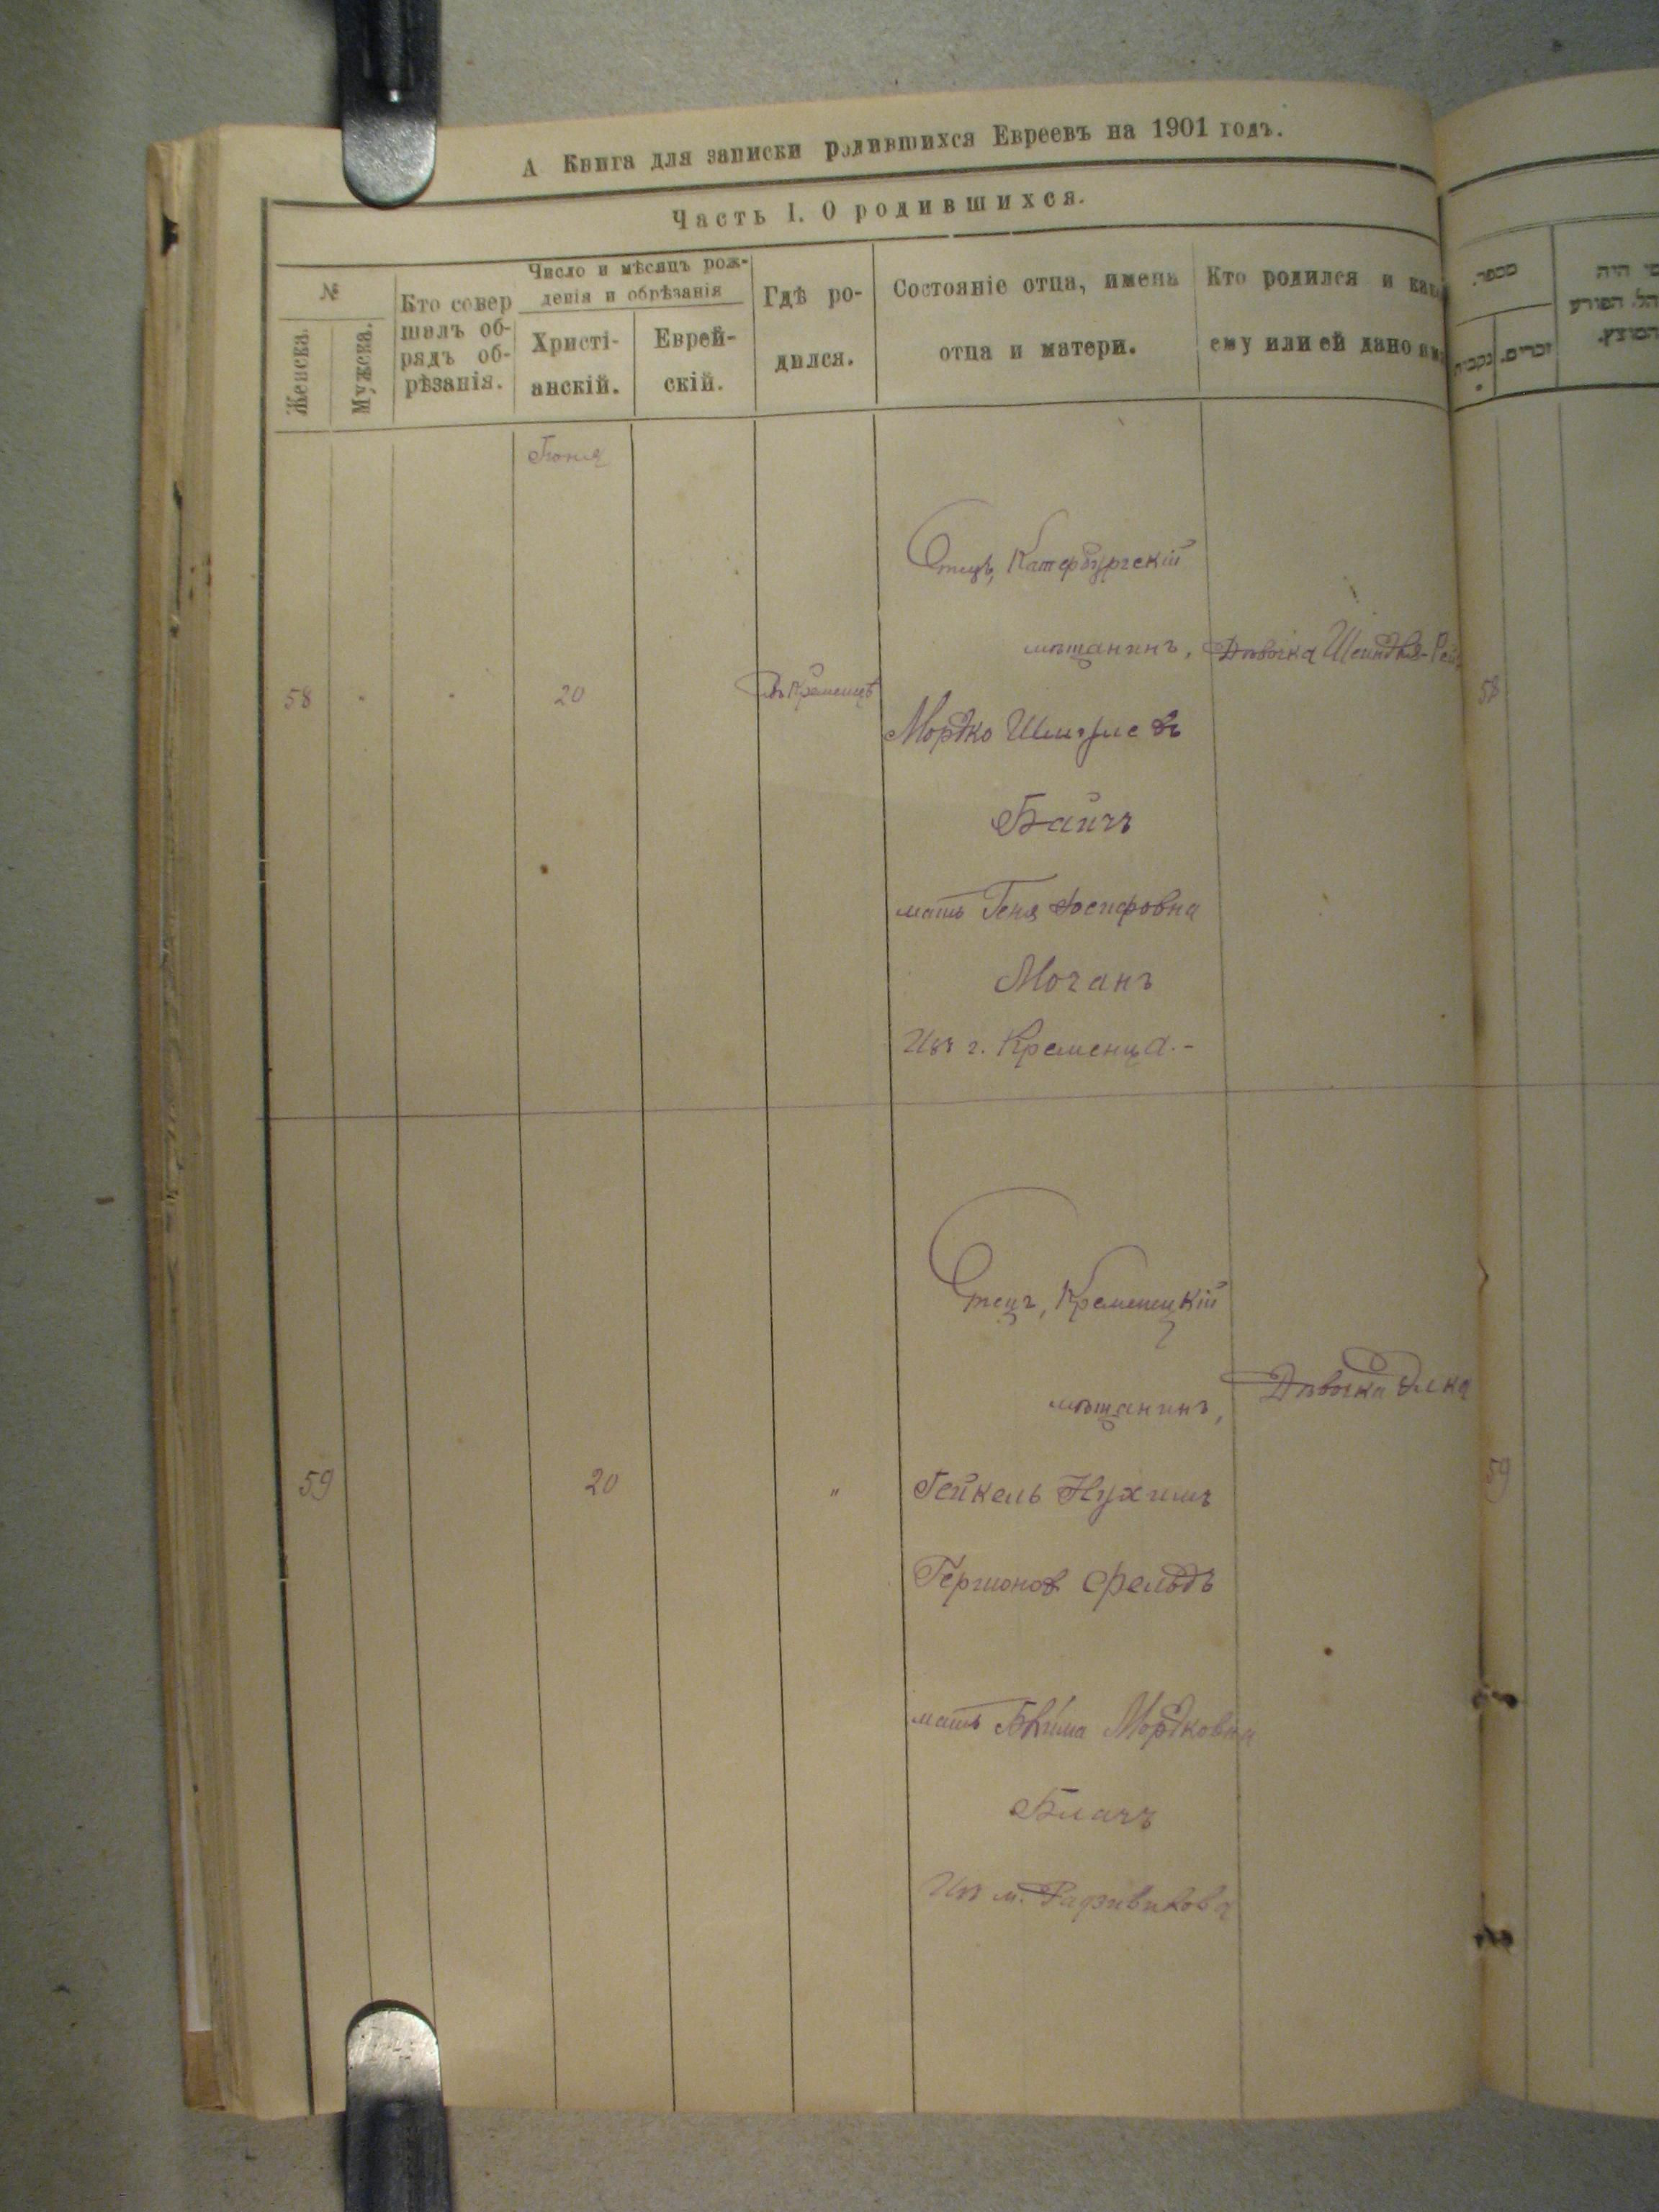 А Книга для записки родившихся Евреевъ на 1901 годъ.
Часть I. О родившихся.
№
Женска.
Мужска.
Кто совер
шалъ об-
рядъ об-
рѣзанія.
Число и мѣсяцъ рож-
денія и обрѣзанія
Христі-
анскій.
Еврей-
скій.
Гдѣ ро-
дился.
Состояніе отца, имена
отца и матери.
Кто родился и как
ему или ей дано
מספר.
נקבות
זכרים.
Іюня
58
20
Въ Кременцѣ
Отецъ, Катербургскій
мѣщанинъ,
Мордко
Байчъ
мать Геня Іосифовна
Мочанъ
Изъ г. Кременца.-
Дѣвочка Шейндля-Рей
58
59
20
"
Отецъ, Кременецкій
мѣщанинъ,
Гейкель Нухимъ
фельдъ
мать Мордковна
Изъ м. Радзивилова
Дѣвочка Элка
59